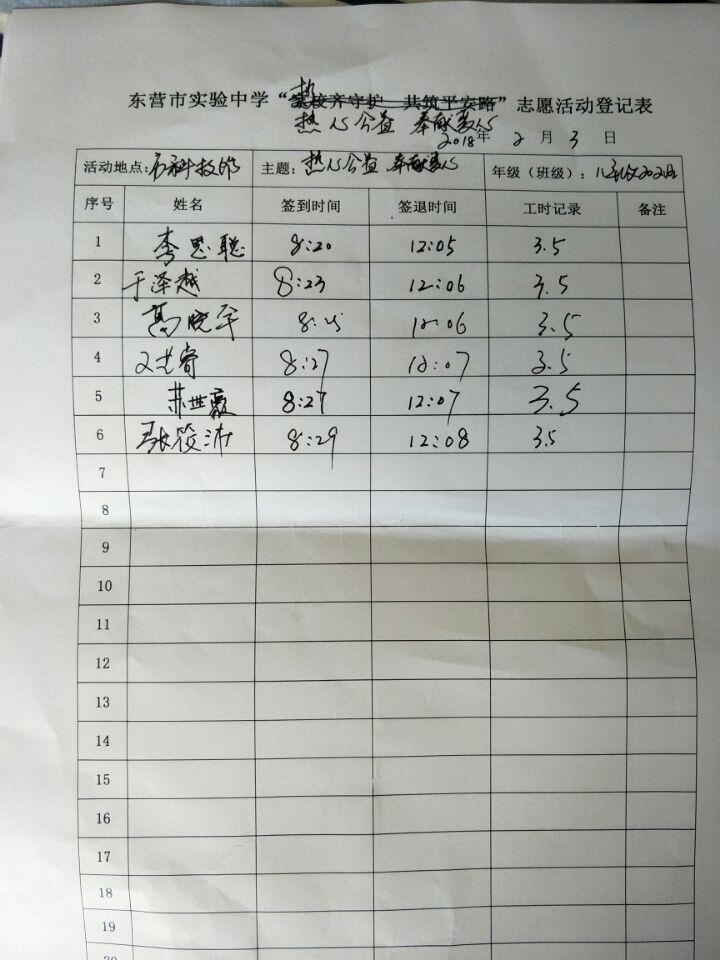 东营市实验中学“家校齐守护 共筑平安路”志愿活动登记表
热心公益 奉献爱心
2018年 2 月 3 日
活动地点: 主题: 热心公益 奉献爱心 年级(班级):
序号 姓名 签到时间 签退时间 工时记录 备注
1 李思聪 8:20 12:05 3.5
2 于泽越 8:23 12:06 3.5
3 高晓宇 8:25 12:06 3.5
4 8:27 12:07 3.5
5 苏世薇 8:27 12:07 3.5
6 张筱沛 8:29 12:08 3.5
7
8
9
10
11
12
13
14
15
16
17
18
19
20